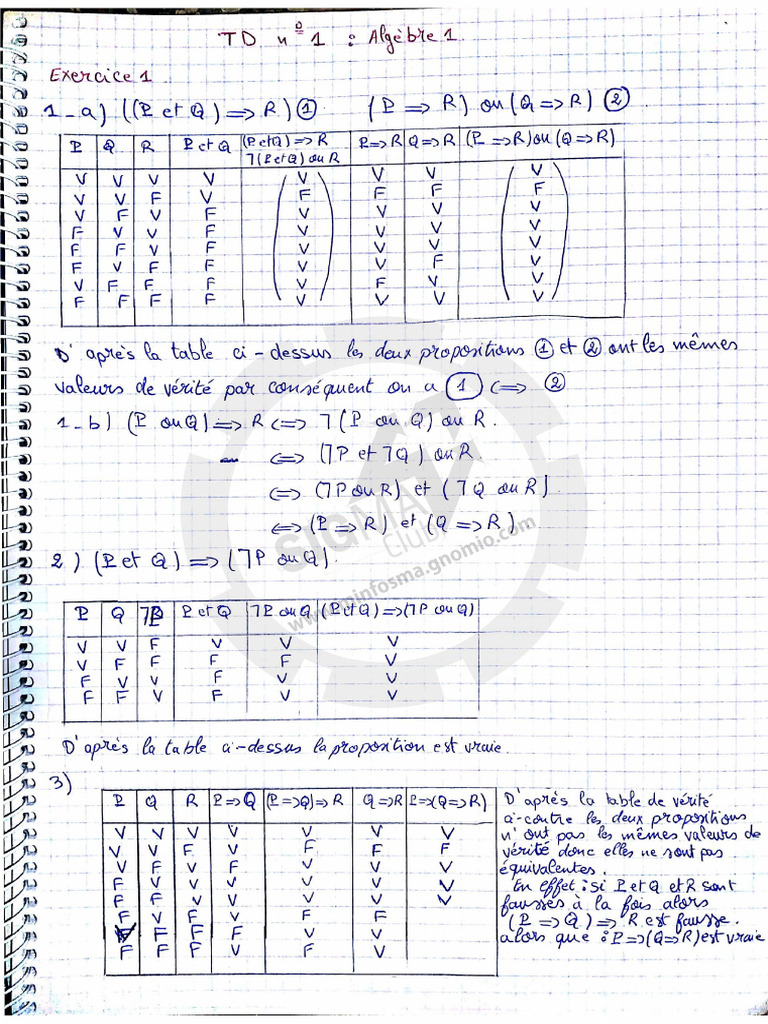 TD n° 1 : Algèbre 1.
Exercice 1
1_a) ((P et Q) => R) ① (P => R) ou (Q => R) ②
P Q R P et Q (P et Q) => R P => R Q => R (P => R) ou (Q => R)
ꓶ(P et Q) ou R
V V V V V V V V
V V F V F F F F
V F V F V V V V
F V V F V V V V
F F V F V V V V
F V F F V V F V
V F F F V F V V
F F F F V V V V
D'après la table ci-dessus les deux propositions ① et ② ont les mêmes
valeurs de vérité par conséquent on a ① <=> ②
1_b) (P ou Q) => R <=> ꓶ(P ou Q) ou R.
<=> (ꓶP et ꓶQ) ou R.
<=> (ꓶP ou R) et (ꓶQ ou R)
<=> (P => R) et (Q => R)
2) (P et Q) => (ꓶP ou Q).
P Q ꓶP P et Q ꓶP ou Q (P et Q) => (ꓶP ou Q)
V V F V V V
V F F F F V
F V V F V V
F F V F V V
D'après la table ci-dessus la proposition est vraie.
3)
P Q R P => Q (P => Q) => R Q => R P => (Q => R)
V V V V V V V
V V F V F F F
V F V F V V V
F V V V V V V
F F V V V V V
F V F V F F
V F F F V V
F F F V F V
D'après la table de vérité
ci-contre les deux propositions
n'ont pas les mêmes valeurs de
vérité donc elles ne sont pas
équivalentes.
En effet : si P et Q et R sont
fausses à la fois alors
(P => Q) => R est fausse.
alors que : P => (Q => R) est vraie
SIGMA
Club
www.minfosma.gnomio.com